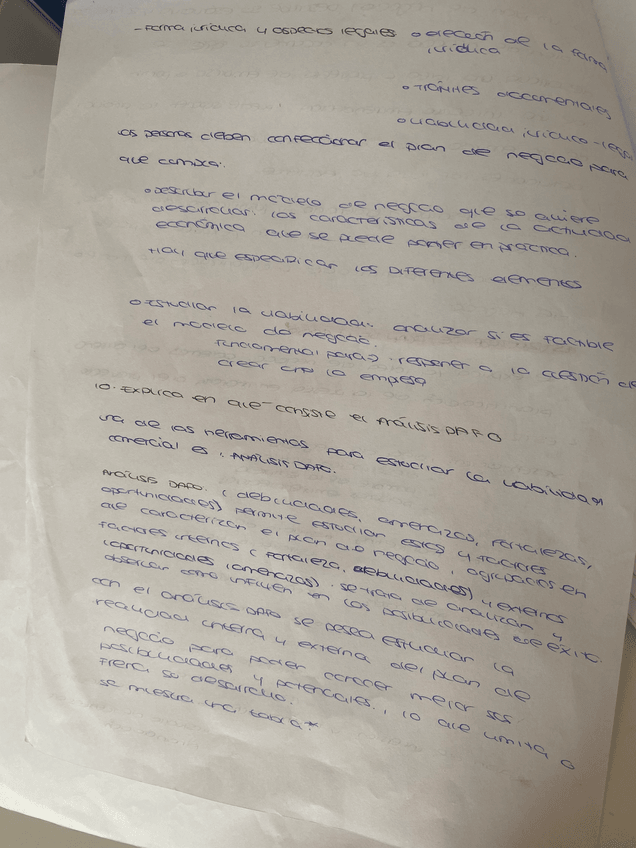 - Forma jurídica y aspectos legales o elección de la forma
jurídica
o Trámites documentales
o viabilidad jurídico-legal
las personas deben confeccionar el plan de negocio para
que cumpla:
o Describir el modelo de negocio que se quiere
desarrollar. las características de la actividad
económica que se puede poner en práctica.
Hay que especificar los diferentes elementos
o Estudiar la viabilidad: analizar si es factible
el modelo de negocio.
fundamental para responer a la cuestión de
crear la empesa
10. Explica en que consiste el Análisis DAFO
una de las herramientas para estudiar la viabilidad
comercial es: ANÁLISIS DAFO.
Análisis DAFO. (debilidades, amenazas, fortalezas,
oportunidades) permite estudiar estos 4 factores
que caracterizan el plan de negocio, agrupados en
factores internos (fortaleza, debilidades) y externos
(oportunidades, amenazas). se trata de analizar y
observar como influyen en las posibilidades de éxito.
con el análisis DAFO se desea estudiar la
realidad interna y externa del plan de
negocio para poder conocer mejor sus
posibilidades y potenciales, lo que limita o
frena su desarrollo.
se muestra una tabla*